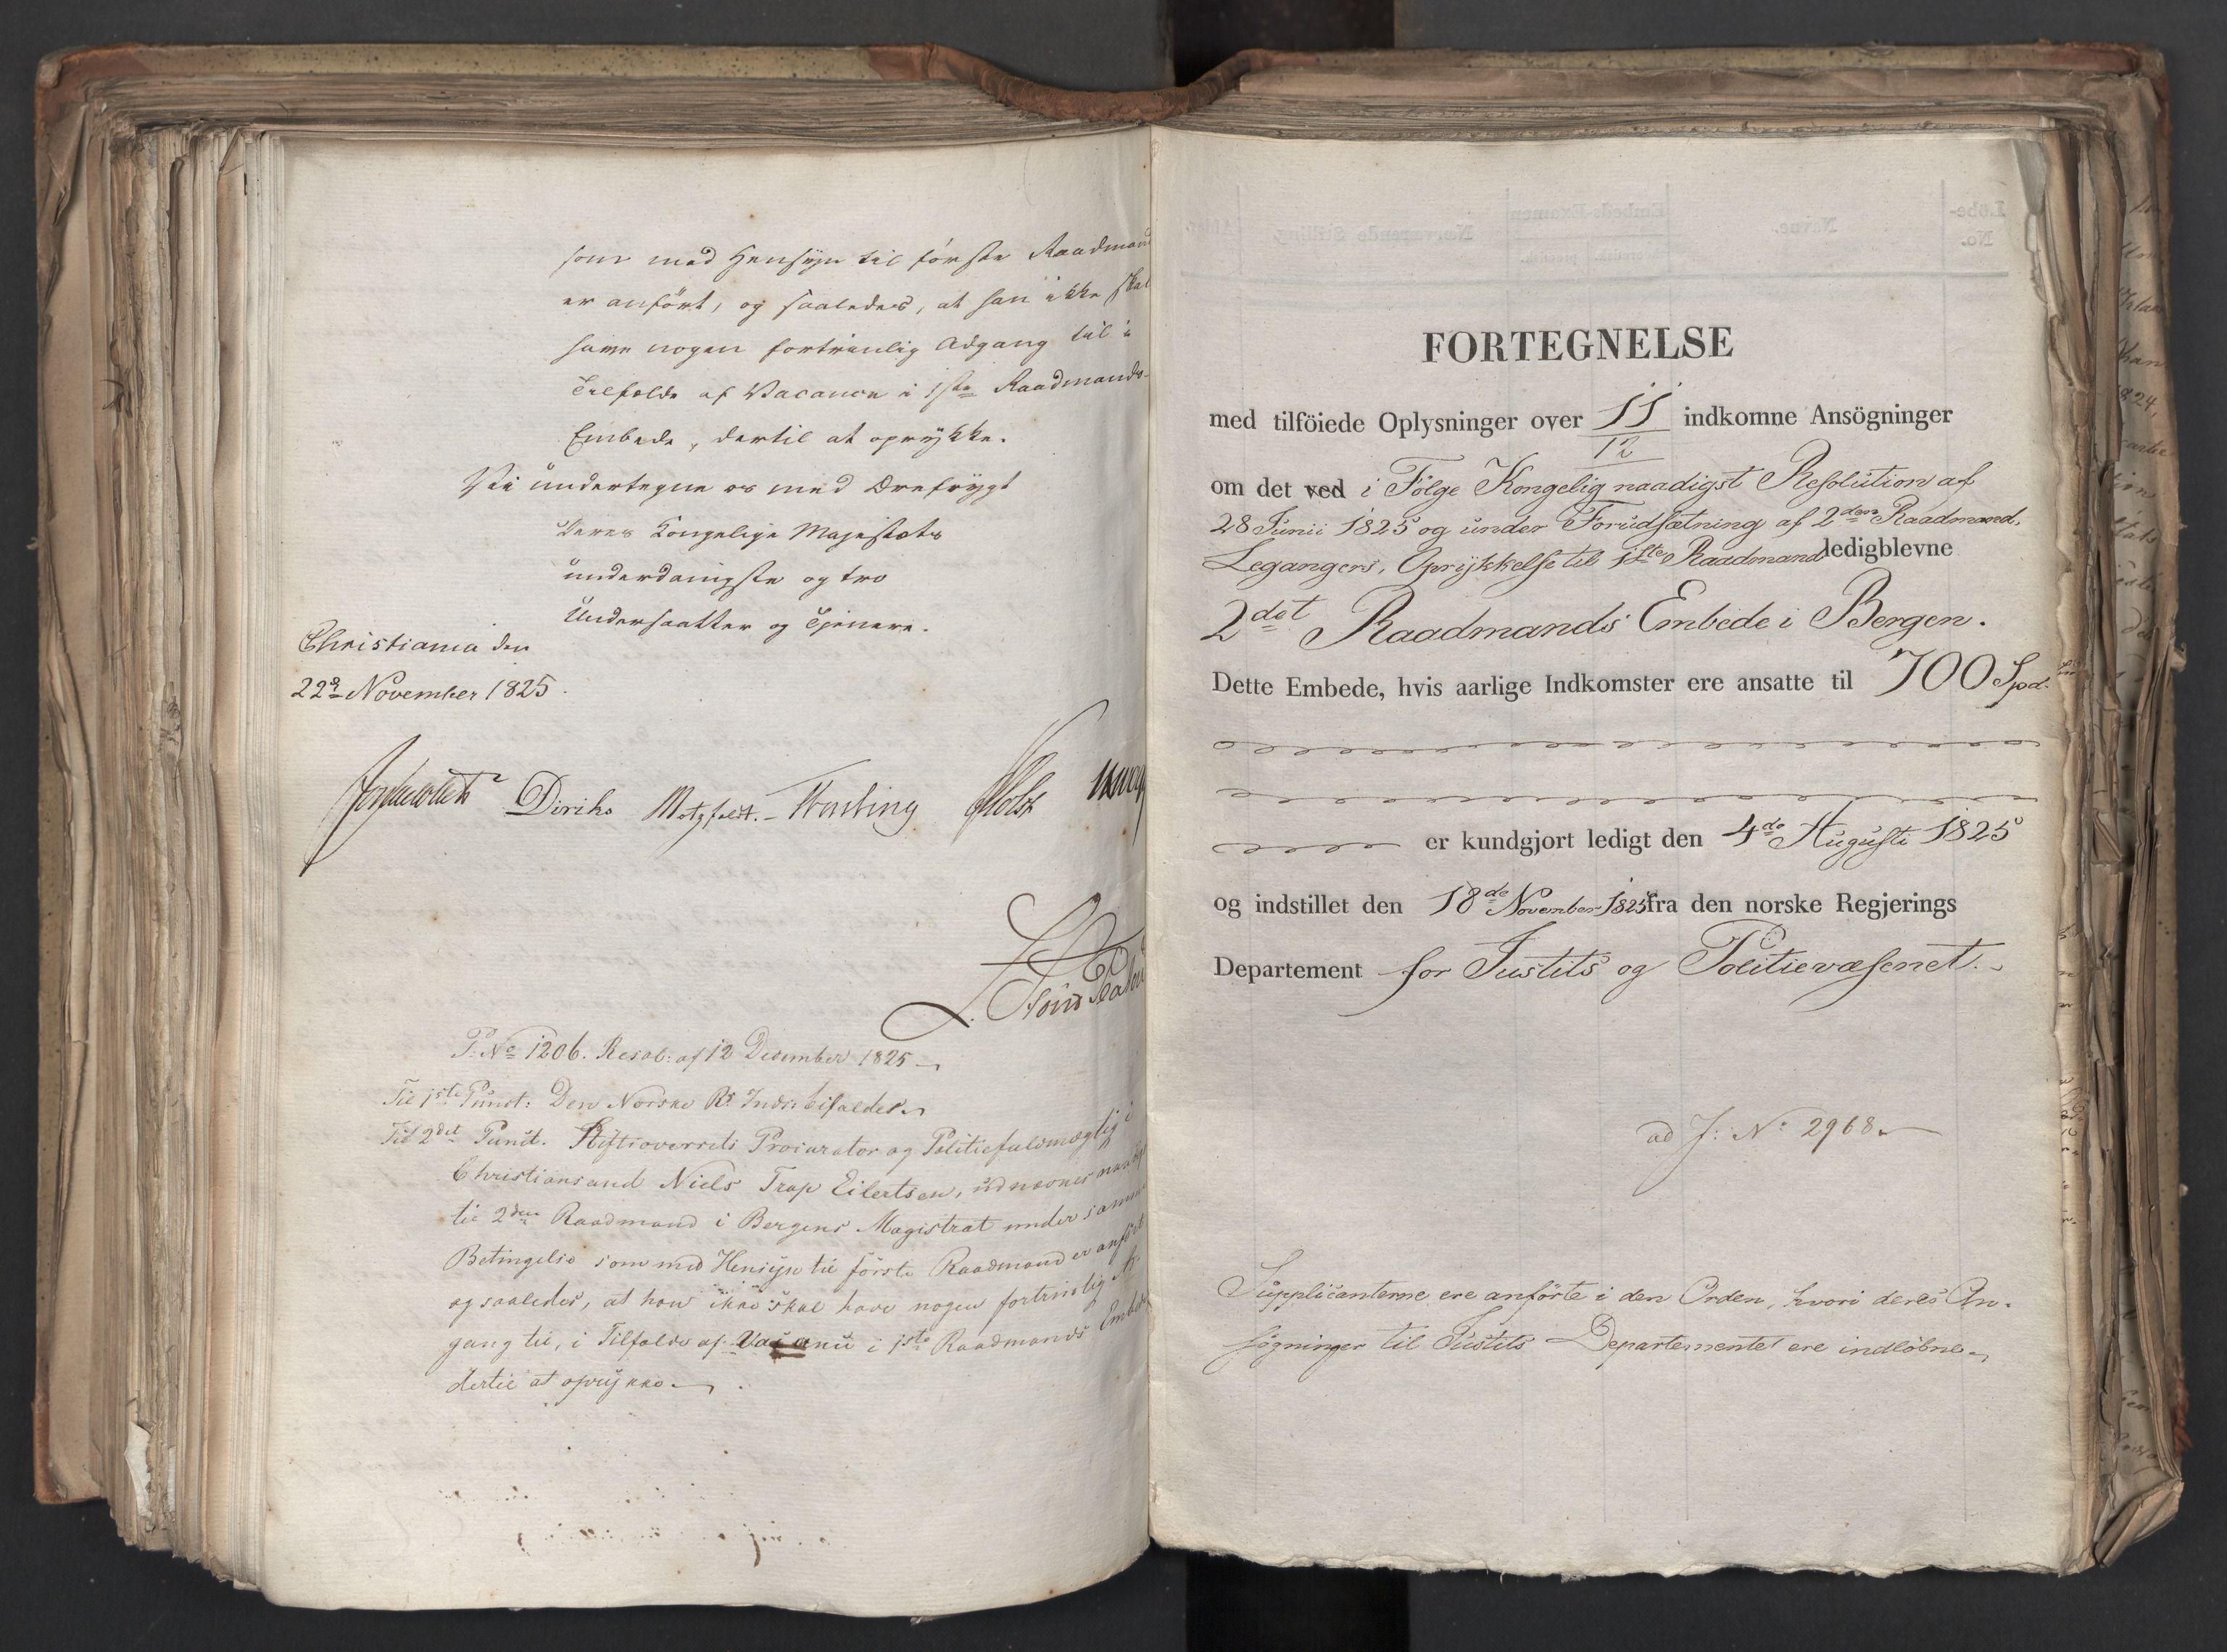 som med Hensyn til første Raadmand
er anført, og saaledes, at han ikke skal
have nogen fortrinlig Adgang til i
Tilfælde af Vacance i 1ste Raadmands
Embede, dertil at oprykke.
Vi undertegne os med Ærefrygt
Deres Kongelige Majestæts
underdanigste og tro
Undersaatter og Tjenere.
Christiania den
22de November 1825.
Diriks Motzfeldt. Fasting Holst
P: No 1206. Resol: af 12 December 1825
Til 1ste Punct: Den Norske Rs Inds: bifaldes.
Til 2det Punct. Stiftsoverrets Procurator og Politiefuldmægtig i
Christiansand Niels Trap Eilertsen, udnævnes naadigst
til 2den Raadmand i Bergens Magistrat under samme
Betingelse som med Hensyn til første Raadmand er anført
og saaledes, at han ikke skal have nogen fortrinlig Ad-
gang til, i Tilfælde af Vacance i 1ste Raadmands Embede
dertil at oprykke.
FORTEGNELSE
med tilföiede Oplysninger over 11 indkomne Ansögninger
12
om det ved i Følge Kongelig naadigst Resolution af
28 Junii 1825 og under Forudsætning af 2den Raadmand,
Legangers, Oprykkelse til 1ste Raadmand ledigblevne
2det Raadmands Embede i Bergen.
Dette Embede, hvis aarlige Indkomster ere ansatte til 700 Spd.
er kundgjort ledigt den 4de Augusti 1825
og indstillet den 18de November 1825 fra den norske Regjerings
Departement for Justits og Politievæsenet.
ad J: No 2968.
Supplicanterne ere anførte i den Orden, hvori deres An-
søgninger til Justits Departementet ere indløbne.